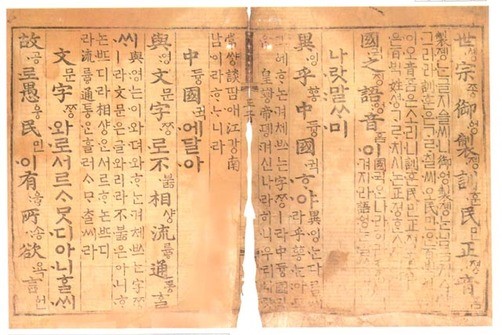 世솅宗종御엉製졩訓훈民민正졍音음
製졩는글지ᅀᅳᆯ씨니御엉製졩는님금지ᅀᅳ샨
그리라訓훈은ᄀᆞᄅᆞ칠씨오民민ᄋᆞᆫ百ᄇᆡᆨ姓셩
이오音음은소리니訓훈民민正졍音음
은百ᄇᆡᆨ姓셩ᄀᆞᄅᆞ치시논正졍ᄒᆞᆫ소리라
國귁之징語ᅌᅥᆼ音음이
國귁ᄋᆞᆫ나라히라之징ᄂᆞᆫ입
겨지라語ᅌᅥᆼ는말ᄊᆞ미라
나랏말ᄊᆞ미
異잉乎ᅘᅩᆼ中듕國귁ᄒᆞ야
異잉는다ᄅᆞᆯ씨라乎ᅘᅩᆼ는아모그ᅌᅦ
ᄒᆞ논겨체쓰는字ᄍᆞᆼㅣ라中듕國귁ᄋᆞᆫ
皇황帝뎽겨신나라히니우리나랏
常쌍談땀애江강南
남이라ᄒᆞᄂᆞ니라
中듕國귁에달아
與영文문字ᄍᆞᆼ로不불相샹流륭通통ᄒᆞᆯ
ᄊᆡ
與영는이와뎌와ᄒᆞ는겨체쓰는字ᄍᆞᆼ
ㅣ라文문은글와리라不불은아니ᄒᆞ
논ᄠᅳ디라相샹ᄋᆞᆫ서르ᄒᆞ논ᄠᅳ디
라流륭通통ᄋᆞᆫ흘러ᄉᆞᄆᆞᄎᆞᆯ씨라
文문字ᄍᆞᆼ와로서르ᄉᆞᄆᆞᆺ디아니ᄒᆞᆯᄊᆡ
故공로愚웅民민이有우ᇢ所송欲욕言언